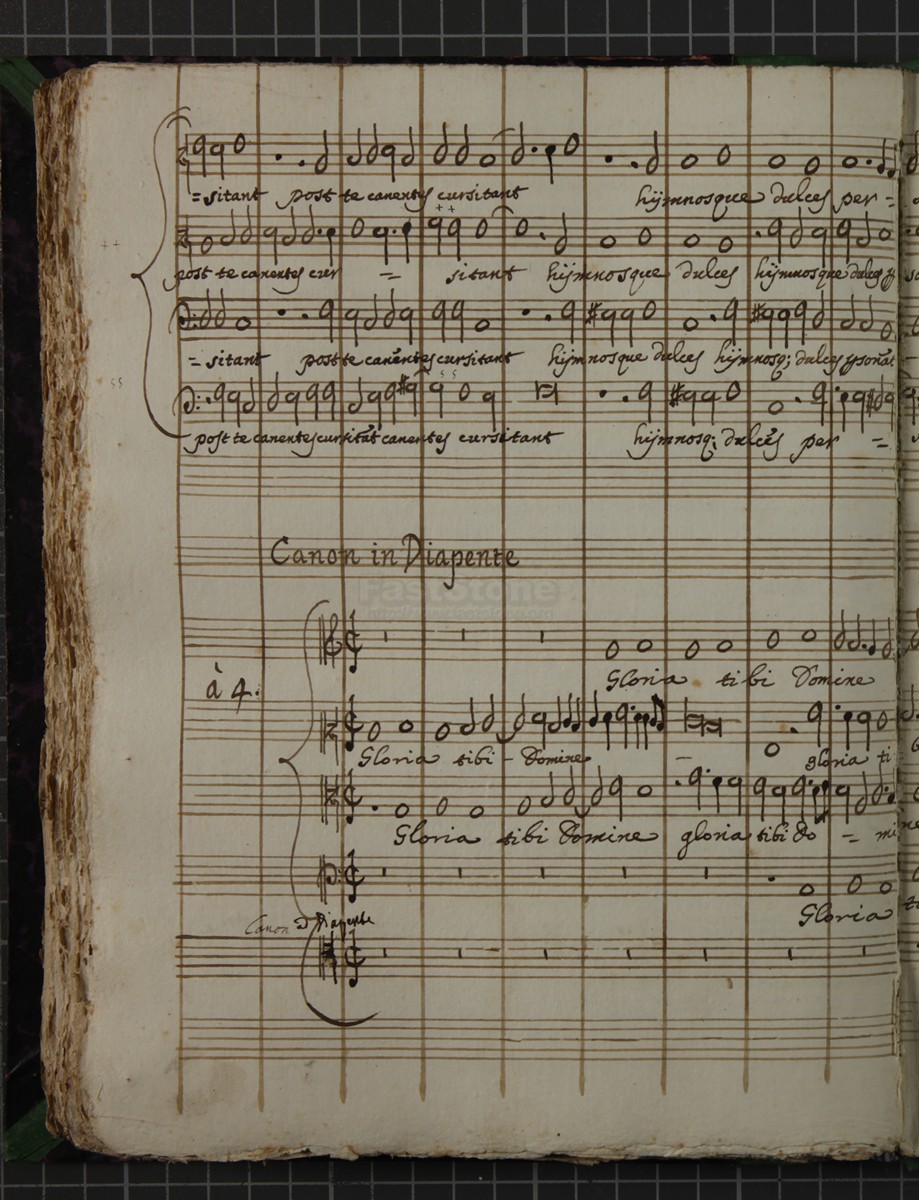 = sitant post te canentes cursitant hijmnosque dulces per =
post te canentes cur = sitant hijmnosque dulces hijmnosque dulces
= sitant post te canentes cursitant hijmnosque dulces hijmnosq; dulces
post te canentes cursitāt canentes cursitant hijmnosq; dulces per =
Canon in Diapente
FastStone
Gloria tibi Domine
à 4.
Gloria tibi - Domine - gloria ti
Gloria tibi Domine gloria tibi Do = mi
Gloria
Canon Diapente